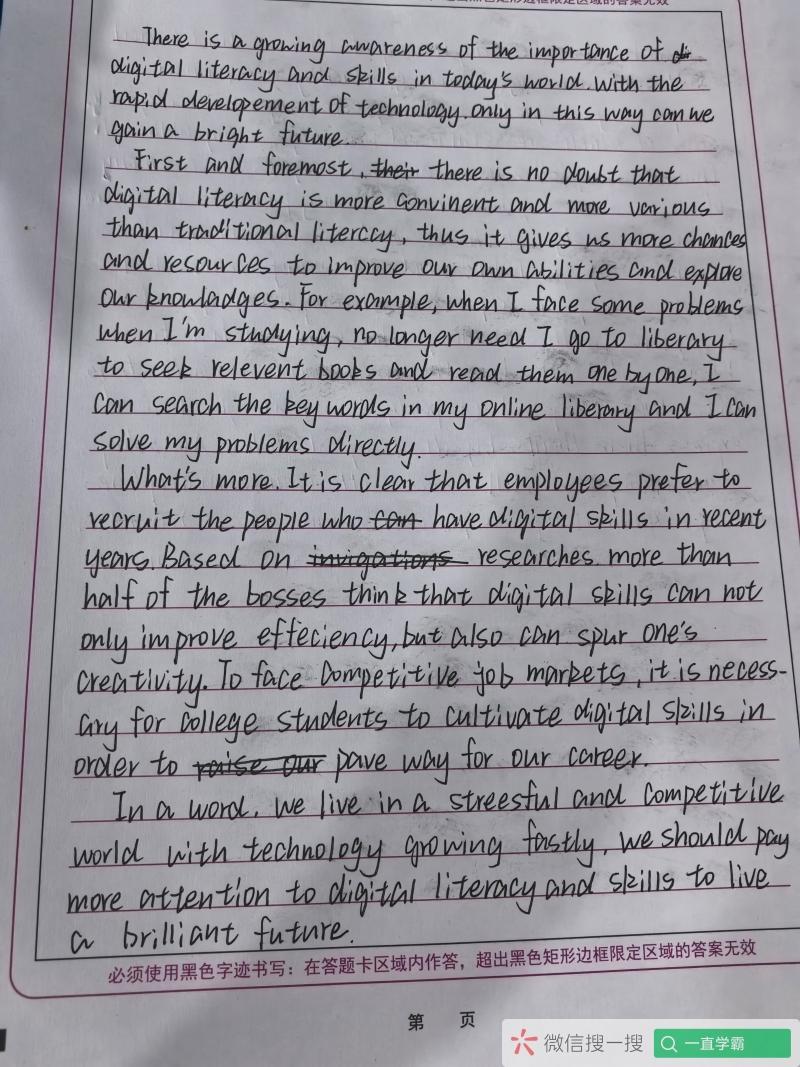 There is a growing awareness of the importance of
digital literacy and skills in today's world. with the
rapid developement of technology. only in this way can we
gain a bright future.
First and foremost, their there is no doubt that
digital literacy is more convinent and more various
than traditional literccy, thus it gives us more chances
and resources to improve our own abilities and explore
our knowladges. For example, when I face some problems
when I'm studying, no longer need I go to liberary
to seek relevent books and read them one by one, I
can search the key words in my online liberary and I can
solve my problems directly.
What's more. It is clear that employees prefer to
recruit the people who can have digital skills in recent
years. Based on researches. more than
half of the bosses think that digital skills can not
only improve effeciency, but also can spur one's
creativity. To face competitive job markets, it is necess-
ary for college students to cultivate digital skills in
order to raise our pave way for our career.
In a word, we live in a streesful and competitive
world with technology growing fastly, we should pay
more attention to digital literacy and skills to live
a brilliant future.
必须使用黑色字迹书写：在答题卡区域内作答，超出黑色矩形边框限定区域的答案无效
第 页
微信搜一搜 一直学霸